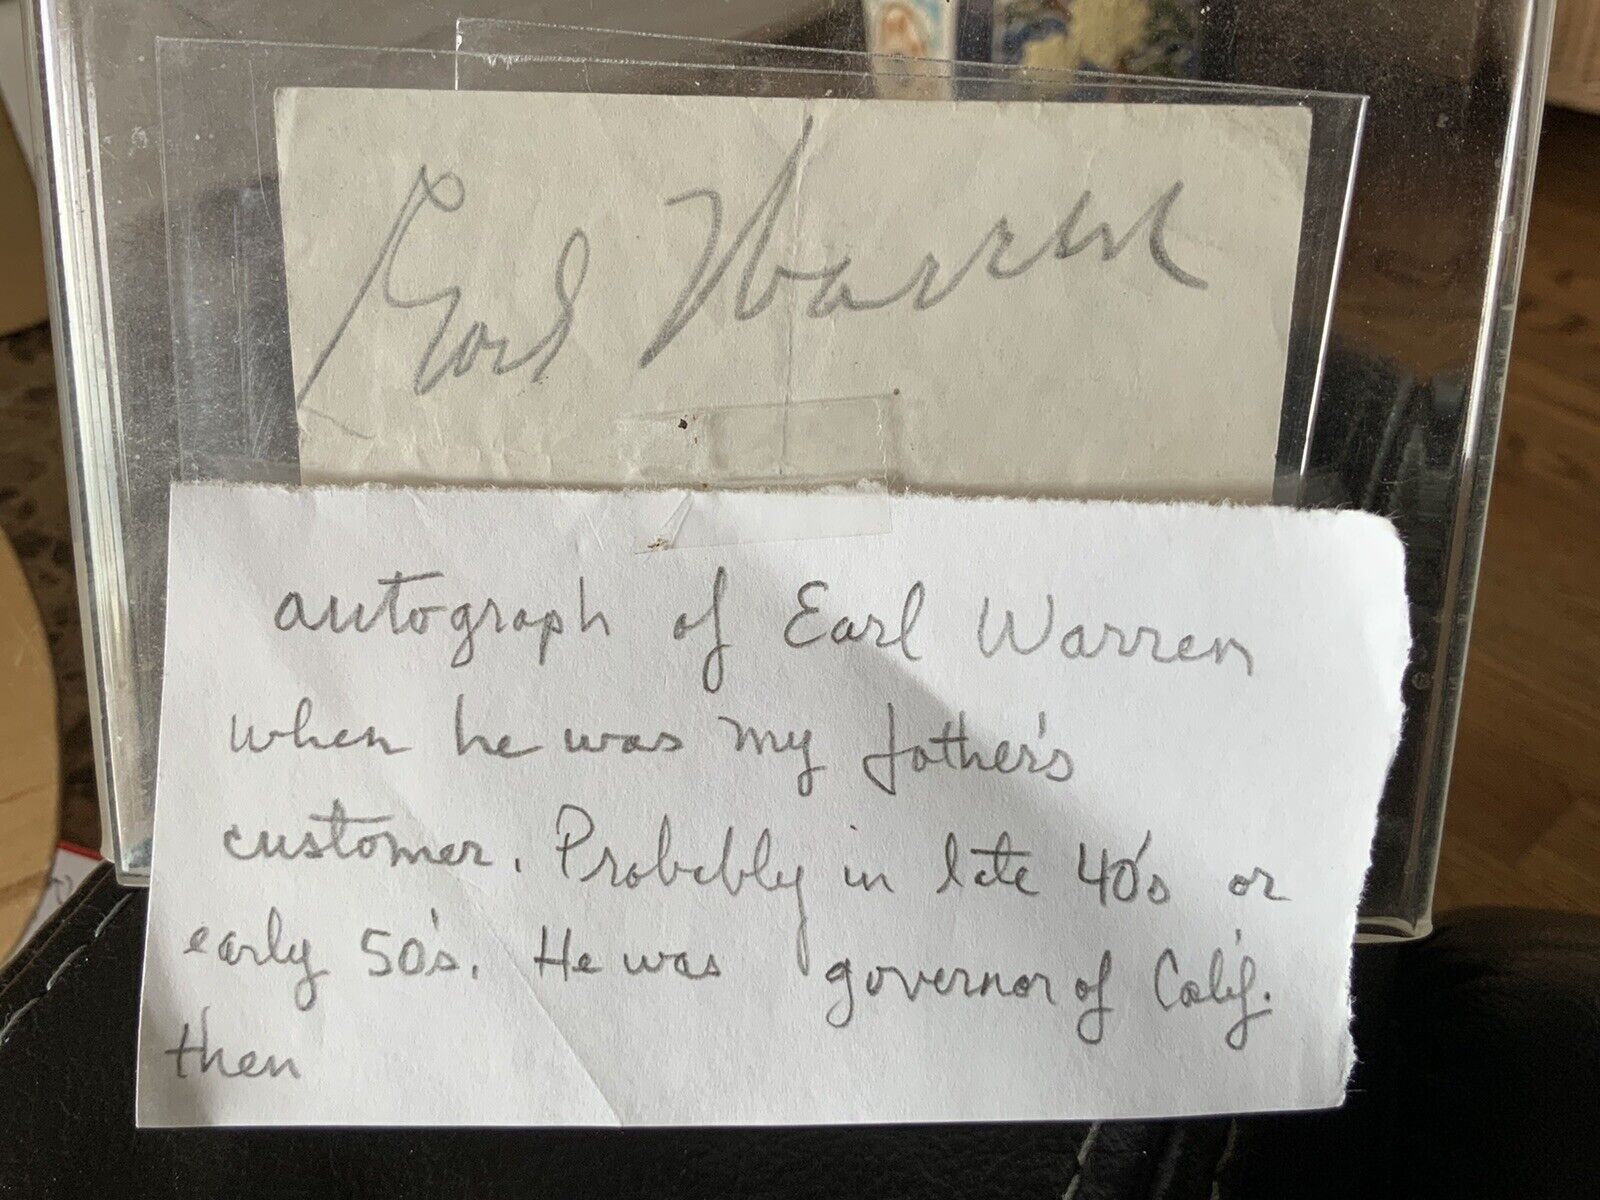 Earl Warren
autograph of Earl Warren
when he was my father's
customer. Probably in late 40's or
early 50's. He was governor of Calif.
then